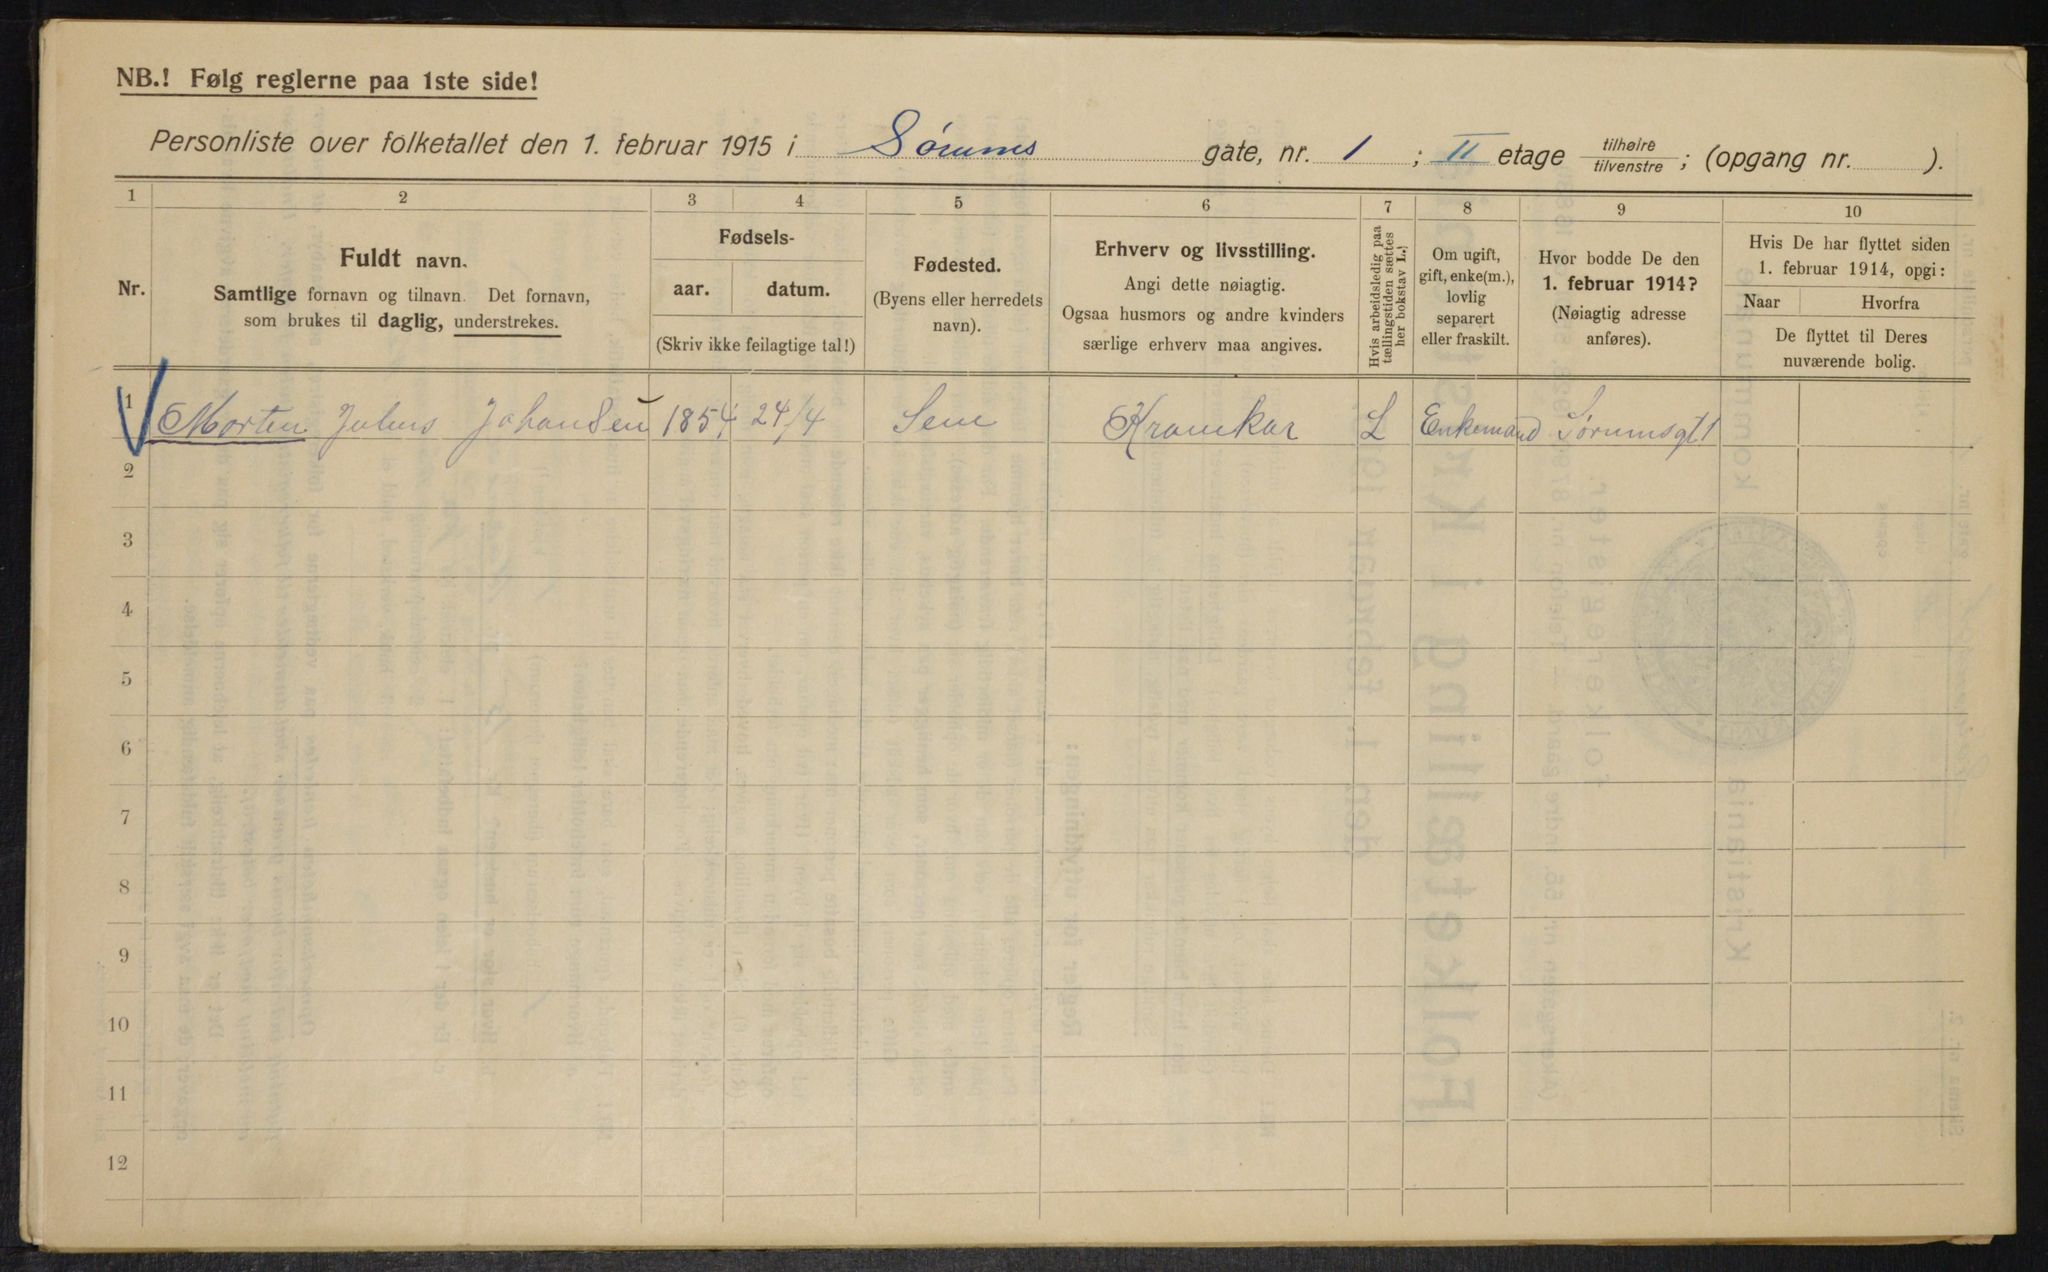 NB.! Følg reglerne paa 1ste side!
Personliste over folketallet den 1. februar 1915 i Sørums gate, nr. 1 ; II etage tilhøire/tilvenstre ; (opgang nr. ).
1 2 3 4 5 6 7 8 9 10
Nr.
Fuldt navn.
Samtlige fornavn og tilnavn. Det fornavn,
som brukes til daglig, understrekes.
Fødsels-
aar. datum.
(Skriv ikke feilagtige tal!)
Fødested.
(Byens eller herredets
navn).
Erhverv og livsstilling.
Angi dette nøiagtig.
Ogsaa husmors og andre kvinders
særlige erhverv maa angives.
Hvis arbeidsledig paa
tællingstiden sættes
her bokstav L.
Om ugift,
gift, enke(m.),
lovlig
separert
eller fraskilt.
Hvor bodde De den
1. februar 1914?
(Nøiagtig adresse
anføres).
Hvis De har flyttet siden
1. februar 1914, opgi:
Naar Hvorfra
De flyttet til Deres
nuværende bolig.
1 Morten Julius Johansen 1854 24/4 Enkemand Sørumsgt 1 L
2
3
4
5
6
7
8
9
10
11
12